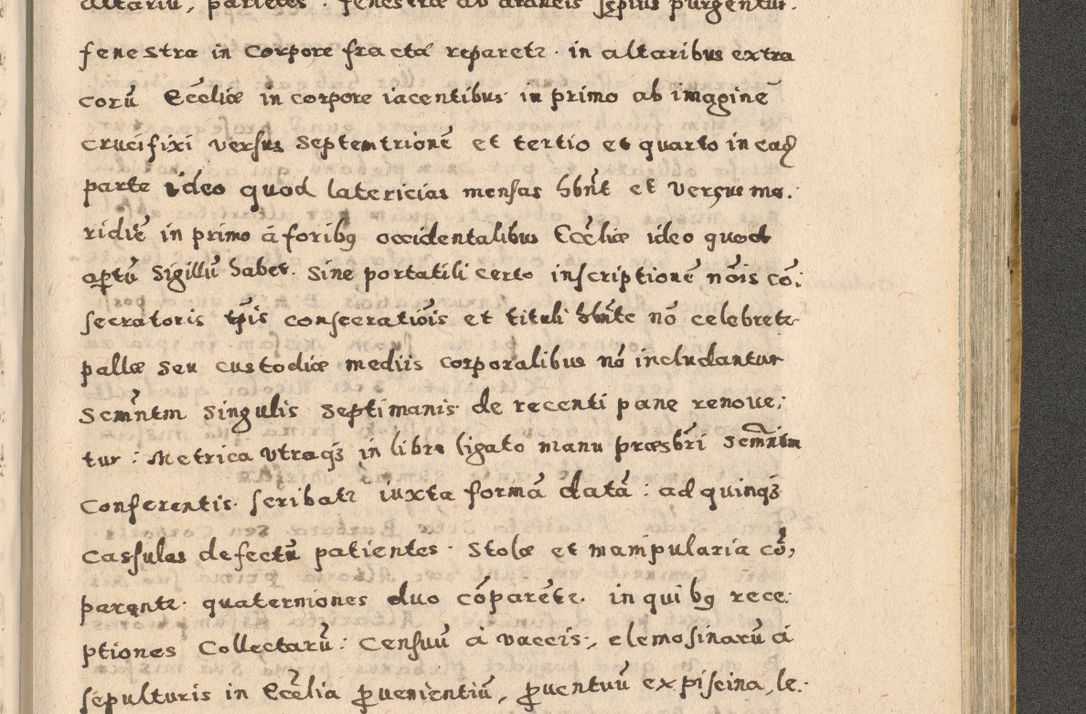 altariũ, parietes. fenestræ ab araneis sepius purgentur.
fenestra in corpore fracta reparetr. in altaribus extra
corũ Ecćliæ in corpore iacentibus in primo ab imagine
crucifixi versus Septemtrione et tertio et quarto in eadẽ
parte ideo quod latericias mensas hbñt et versus me.
ridiẽ in primo á foribȝ occidentalibus Ecćliæ ideo quod
aptũ Sigillũ habet. Sine portatili certo inscriptionẽ nõis cõ:
secratoris tp̃is consecratiõis et tituli hbñte nõ celebretr
pallæ seu custodiæ mediis corporalibus nõ includantur
Semñtm Singulis Septimanis de recenti pane renoue:
tur: Metrica vtraqȝ in libro ligato manu præsbri Semñtm
Conferentis. scribatr iuxta formã datã: ad quinqȝ
Cassulas defectũ patientes. Stolæ et manipularia cõ,
parentr. quaterniones duo cõparẽtr. in quibȝ rece.
ptiones Collectarũ: Censuũ á vaccis, elemosinarũ á
sepulturis in Ecćlia ꝓuenientiũ, ꝓuentuũ ex piscina, le.